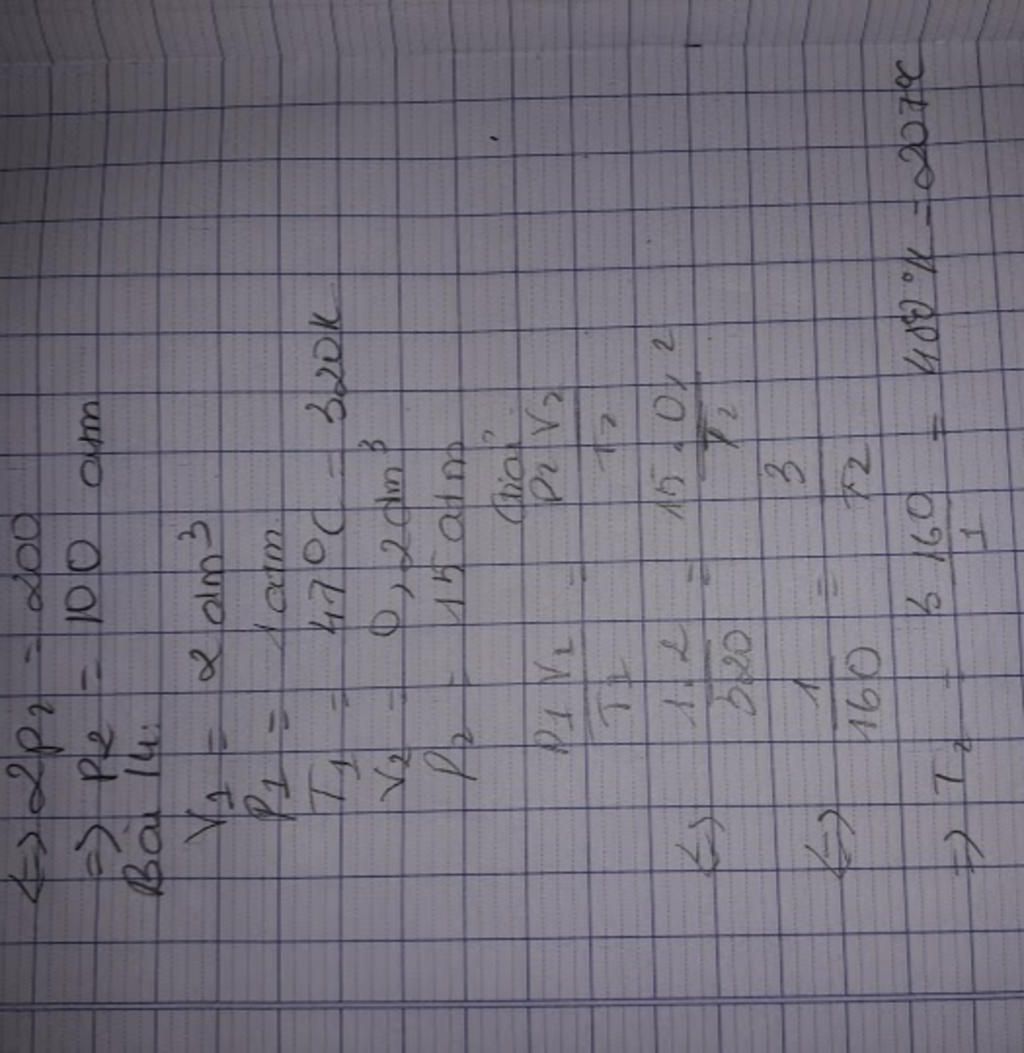 <=> 2P2 = 200
=> P2 = 100 atm
Bài 14:
V1 = 2 dm³
P1 = 1 atm
T1 = 47°C = 320K
V2 = 0,2 dm³
P2 = 15 atm
Giải
P1 V1 / T1 = P2 V2 / T2
<=> 1.2 / 320 = 15.0,2 / T2
<=> 1 / 160 = 3 / T2
=> T2 = 3.160 / 1 = 480°K = 207°C